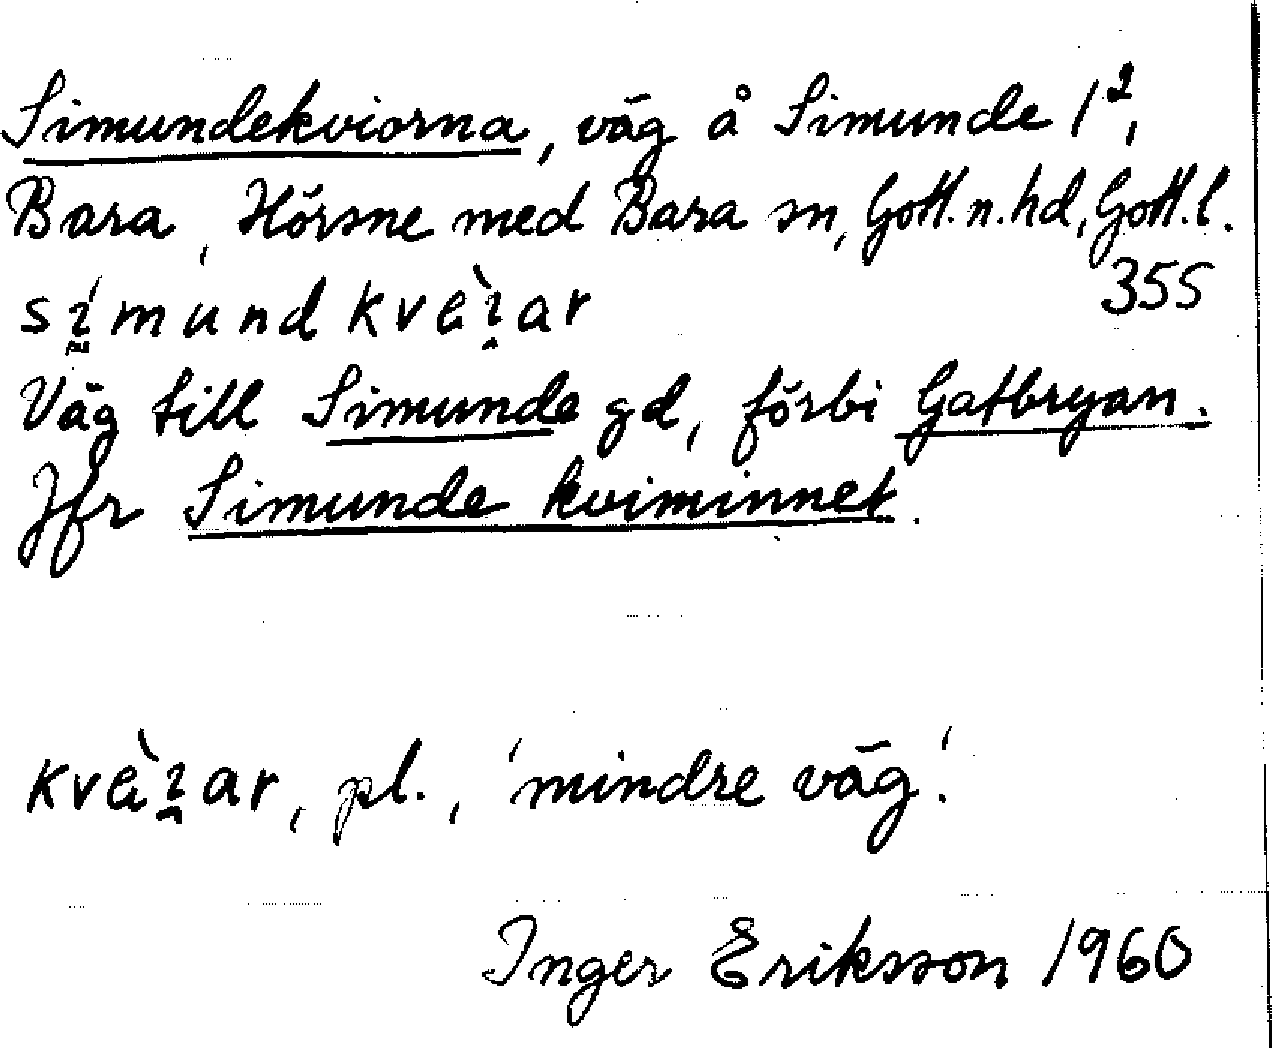 Simundekviorna, väg å Simunde 1²,
Bara, Hörsne med Bara sn, Gotl. n. hd, Gotl. l.
355
símund kvèıar
Väg till Simunde gd, förbi Gatbryan.
Jfr Simunde kviminnet.
kvèıar, pl., 'mindre väg'.
Inger Eriksson 1960